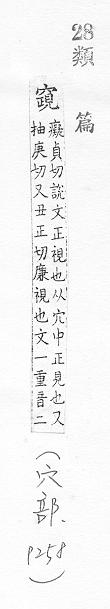 28 類篇
竀
癡貞切說文正視也从穴中正見也又
抽庚切又丑正切廉視也文一重音二
(穴部. p258)